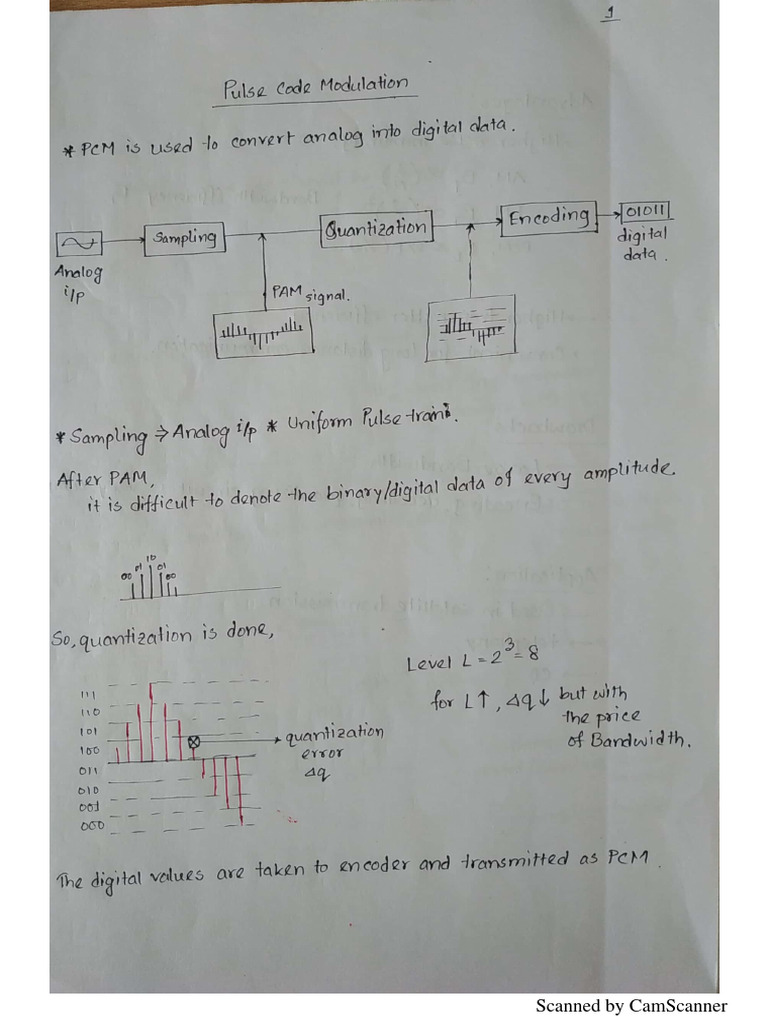 1
Pulse Code Modulation
* PCM is used to convert analog into digital data.
Sampling
Quantization
Encoding
01011
Analog
i/p
digital
data.
PAM signal.
* Sampling ⇒ Analog i/p * Uniform Pulse train.
After PAM,
it is difficult to denote the binary/digital data of every amplitude.
00 01 10 01 00
So, quantization is done,
Level L = 2³ = 8
for L↑, Δq↓ but with
the price
of Bandwidth.
111
110
101
100
011
010
001
000
quantization
error
Δq
The digital values are taken to encoder and transmitted as PCM.
Scanned by CamScanner